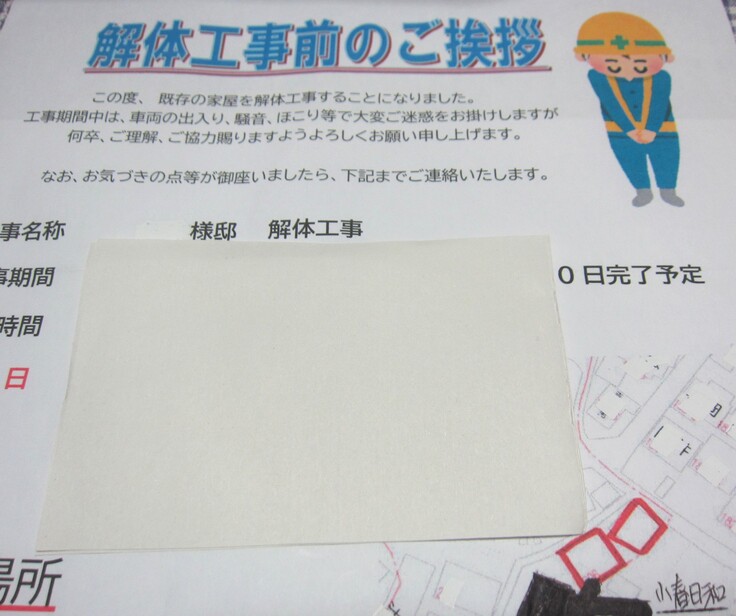 解体工事前のご挨拶
この度、既存の家屋を解体工事することになりました。
工事期間中は、車両の出入り、騒音、ほこり等で大変ご迷惑をお掛けしますが
何卒、ご理解、ご協力賜りますようよろしくお願い申し上げます。
なお、お気づきの点等が御座いましたら、下記までご連絡いたします。
事名称 様邸 解体工事
事期間 0日完了予定
時間
日
場所
小春日和